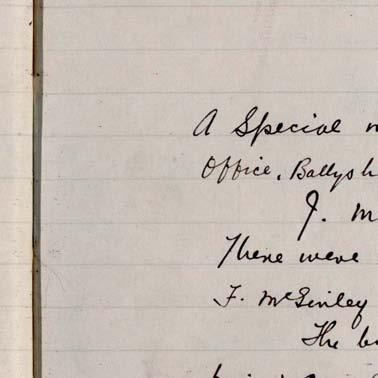 A Special
Office, Ballysh
J. M
There were
F. McGinley
The